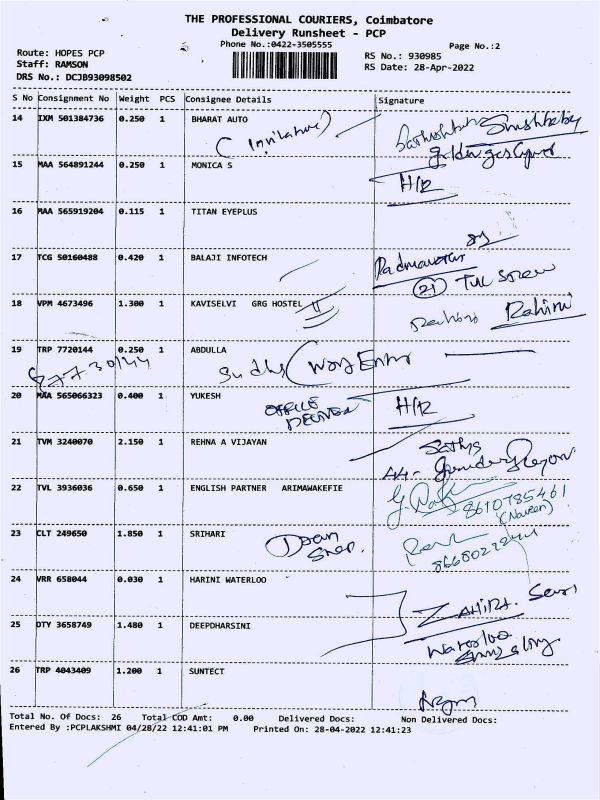 THE PROFESSIONAL COURIERS, Coimbatore
Delivery Runsheet - PCP
Phone No.:0422-3505555
Page No.:2
Route: HOPES PCP
RS No.: 930985
Staff: RAMSON
RS Date: 28-Apr-2022
DRS No.: DCJB93098502
S No Consignment No Weight PCS Consignee Details Signature
14 IXM 501384736 0.250 1 BHARAT AUTO
15 MAA 564891244 0.250 1 MONICA S
H/R
16 MAA 565919204 0.115 1 TITAN EYEPLUS
17 TCG 50160488 0.420 1 BALAJI INFOTECH
Padmavathi
(21)
18 VPM 4673496 1.300 1 KAVISELVI GRG HOSTEL
19 TRP 7720144 0.250 1 ABDULLA
20 MAA 565066323 0.400 1 YUKESH
OFFICE
H/R
21 TVM 3240070 2.150 1 REHNA A VIJAYAN
Sathya
22 TVL 3936036 0.650 1 ENGLISH PARTNER ARIMAWAKEFIE
8610785461
(Naveen)
23 CLT 249650 1.850 1 SRIHARI
24 VRR 658044 0.030 1 HARINI WATERLOO
ZAHIRA.
25 OTY 3658749 1.480 1 DEEPDHARSINI
Waterloo
26 TRP 4043409 1.200 1 SUNTECT
Total No. Of Docs: 26 Total COD Amt: 0.00 Delivered Docs: Non Delivered Docs:
Entered By :PCPLAKSHMI 04/28/22 12:41:01 PM Printed On: 28-04-2022 12:41:23